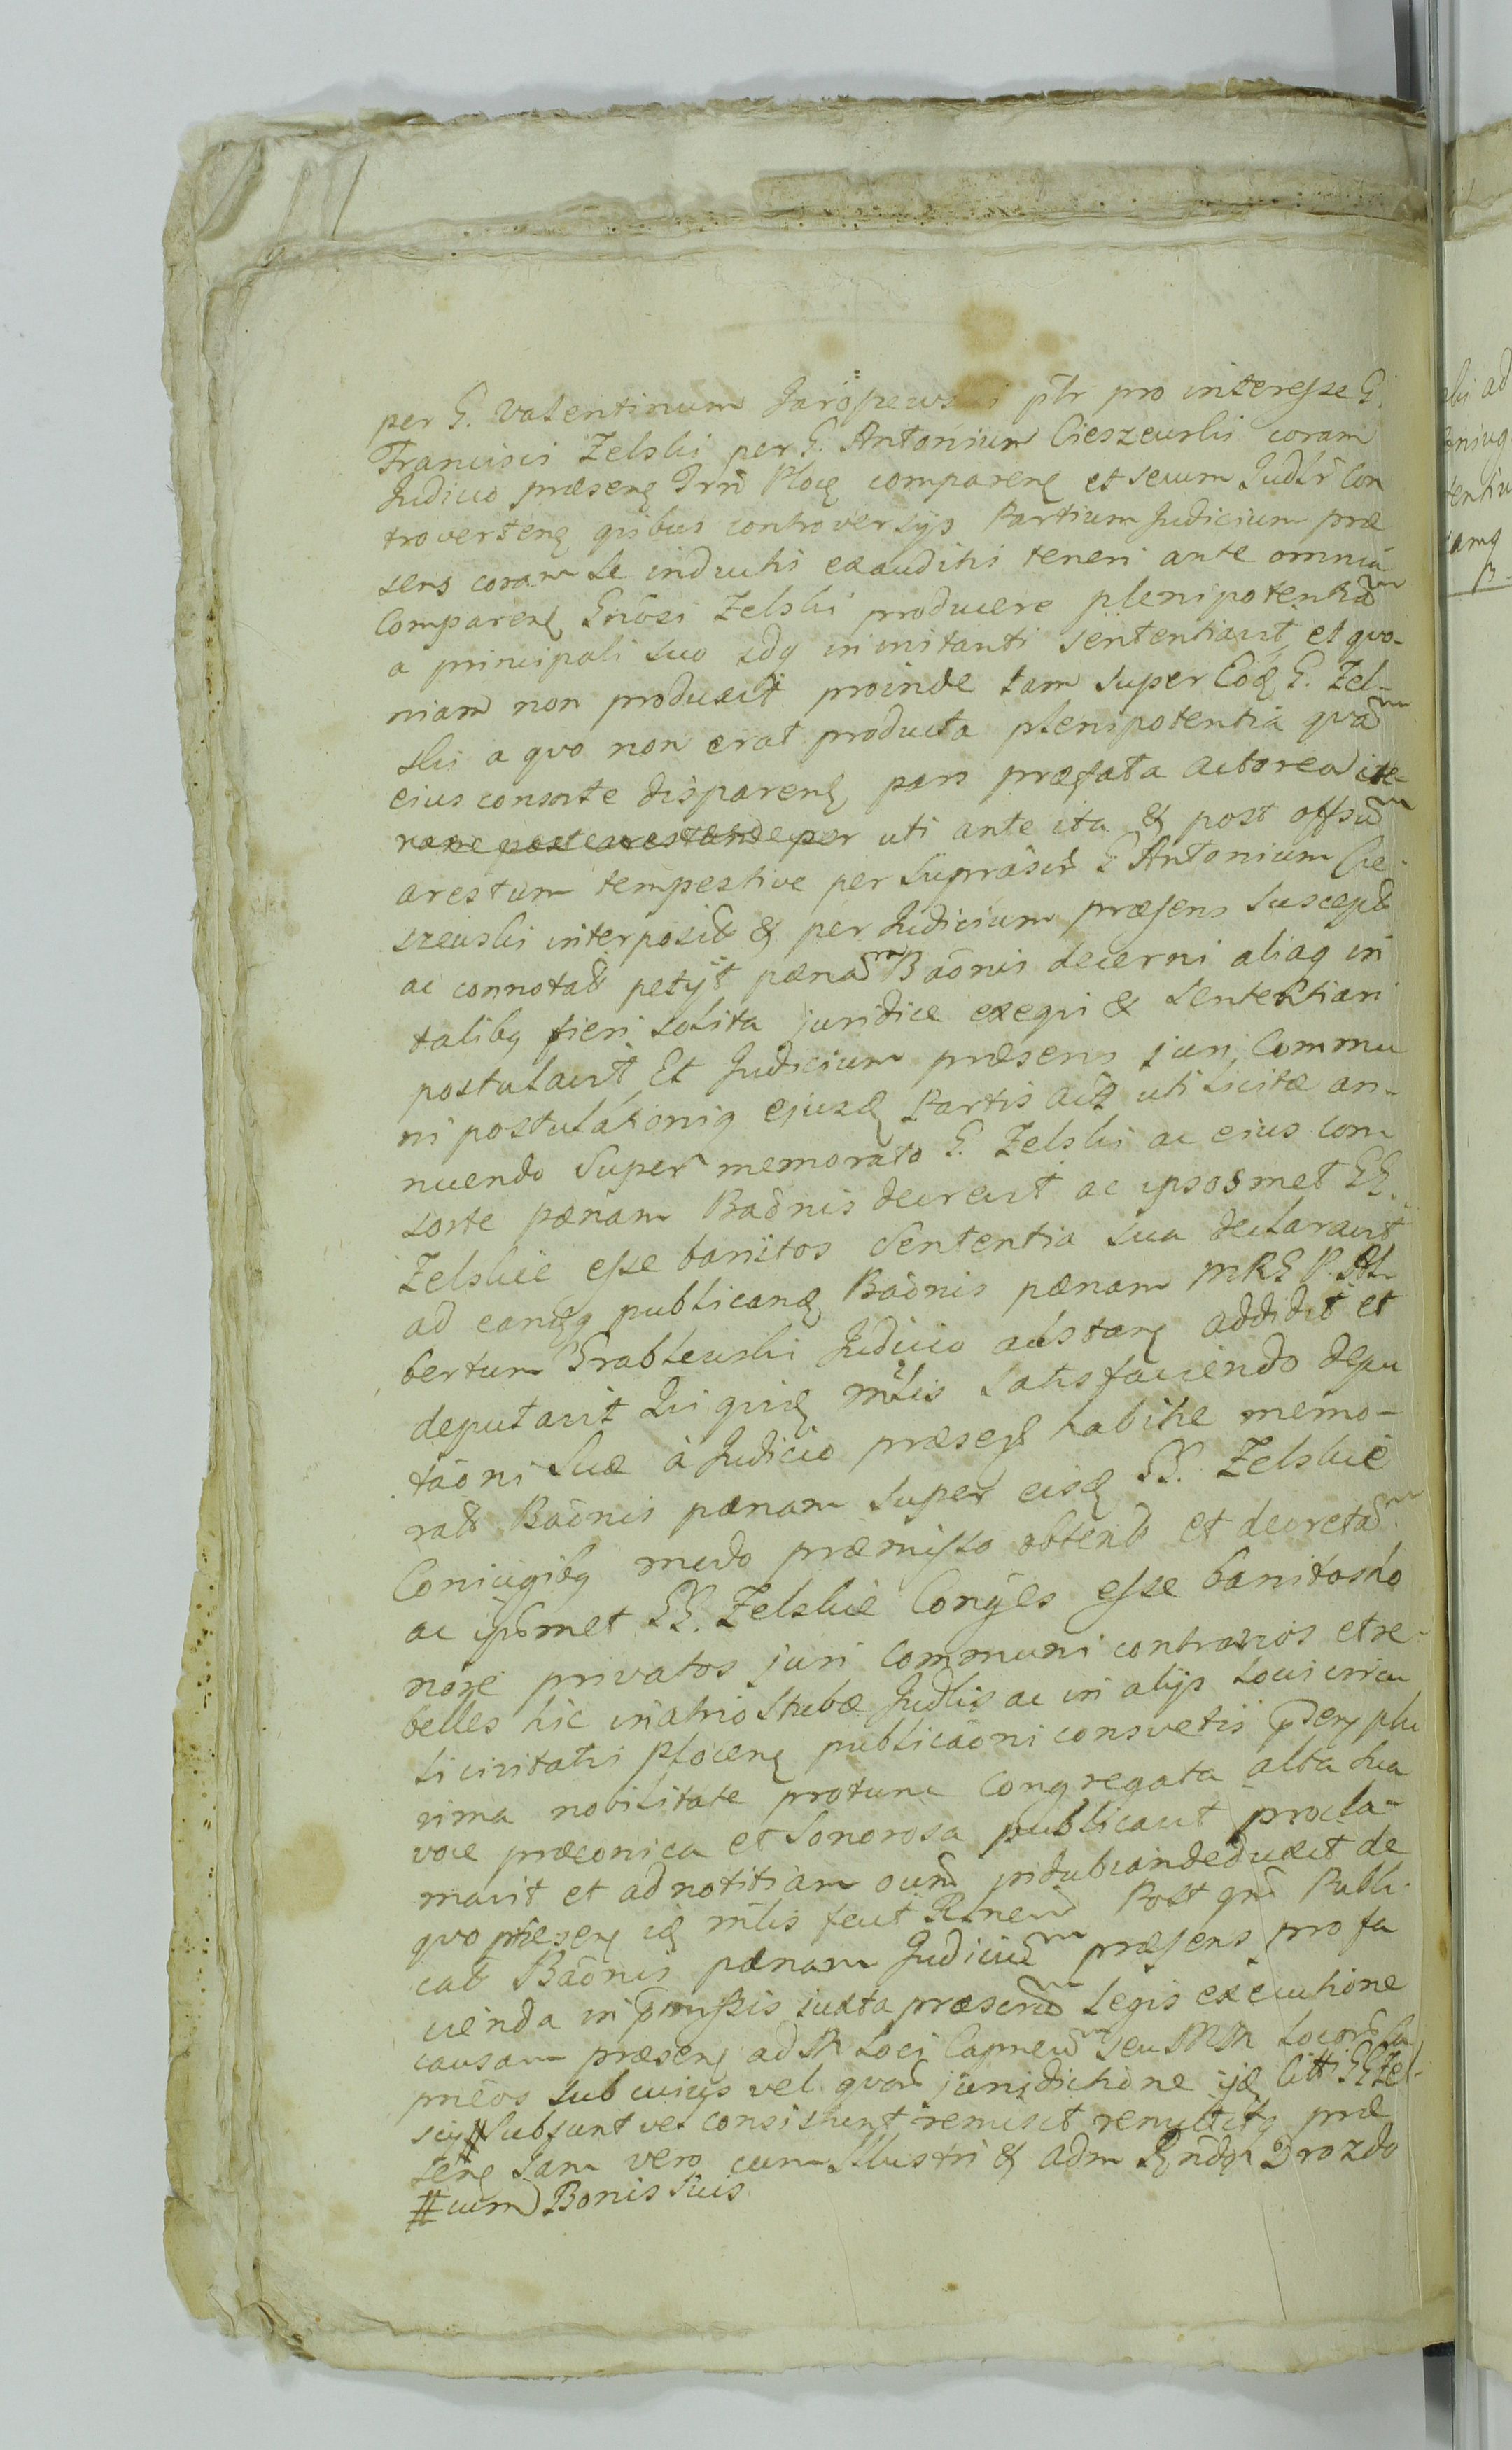 per G. Valentinum Jaroszewski pñr pro interesse G.
Francisci Zelski per G. Antonium Cieszewski coram
Judicio præsenę Trñ Płocę comparenę et secum Judlr Con
trovertenę qúibus controversÿs Partium Judicium præ
sens coram se inductis exauditis teneri ante omnia
Comparenę Gñosi Zelski producere plenipotentiã
a principali suo idq inimitanti sententiavit et quo-
niam non produxit proinde tam super Eodę G. Zel-
ski a quo non erat producta plenipotentia quã
eius consorte disparenę pars præfata actorea
uti ante ita & post offsũ
arestum tempestive per Supràsct G Antonium Cie-
szewski interposit & per Judicium præsens Suscept
ac connotat petÿt pænam Bãõnis decerni aliaq in
talibq fieri solita juridice exequi & sententiari
postulavit Et Judicium præsens juri Commu
ni postulationiq ejusdę Partis Act uti licitæ an-
nuendo Super memorato G. Zelski ac eius Con
sorte pænam Baõnis decrevit ac ipsosmet GG.
Zelskie esse banitos Sententia sua declaravit
ad eandęq publicandę Baõnis pænam MRG P. Al-
bertum Grablewski Judicio adstanę addidit et
deputavit Qui quidę mñlis satisfaciendo depu
tãoni Suæ à Judicio præsenę habitæ memo-
rat Baõnis pænam super eisdę GG. Zelskie
Coniugibq modo præmisso obtent et decretã
ac ipsosmet GG. Zelskie Conÿes esse banitos ho
nore privatos juri Communi contrarios et re-
belles hic in atrio Stubæ Judlis ac in alÿs locis circu
li civitatis Płocenę publicãoni consvetis p̃denę plu
rima nobilitate protunc Congregata alta sua
voce præconica et Sonorosa publicavit procla-
mavit et ad notitiam oũm indubiam deduxit de
quo præsenę idę mñlis fecit Rlñem Post qm̃ Publi
cat Baõnis pænam Judiciũ præsens pro fa
cienda in p̃missis iuxta præscrũ Legis executione
causam præsenę ad M Loci Capneũ seu MM Locorũ Ca
pneos sub cuius vel quorũ jurisdictione ÿdę citti GG Zel-
scÿ # subsunt vel consistunt remisit remittitq præ
senę Jam vero cum Illustri & adm Rñdo Drozdo
# cum Bonis Suis